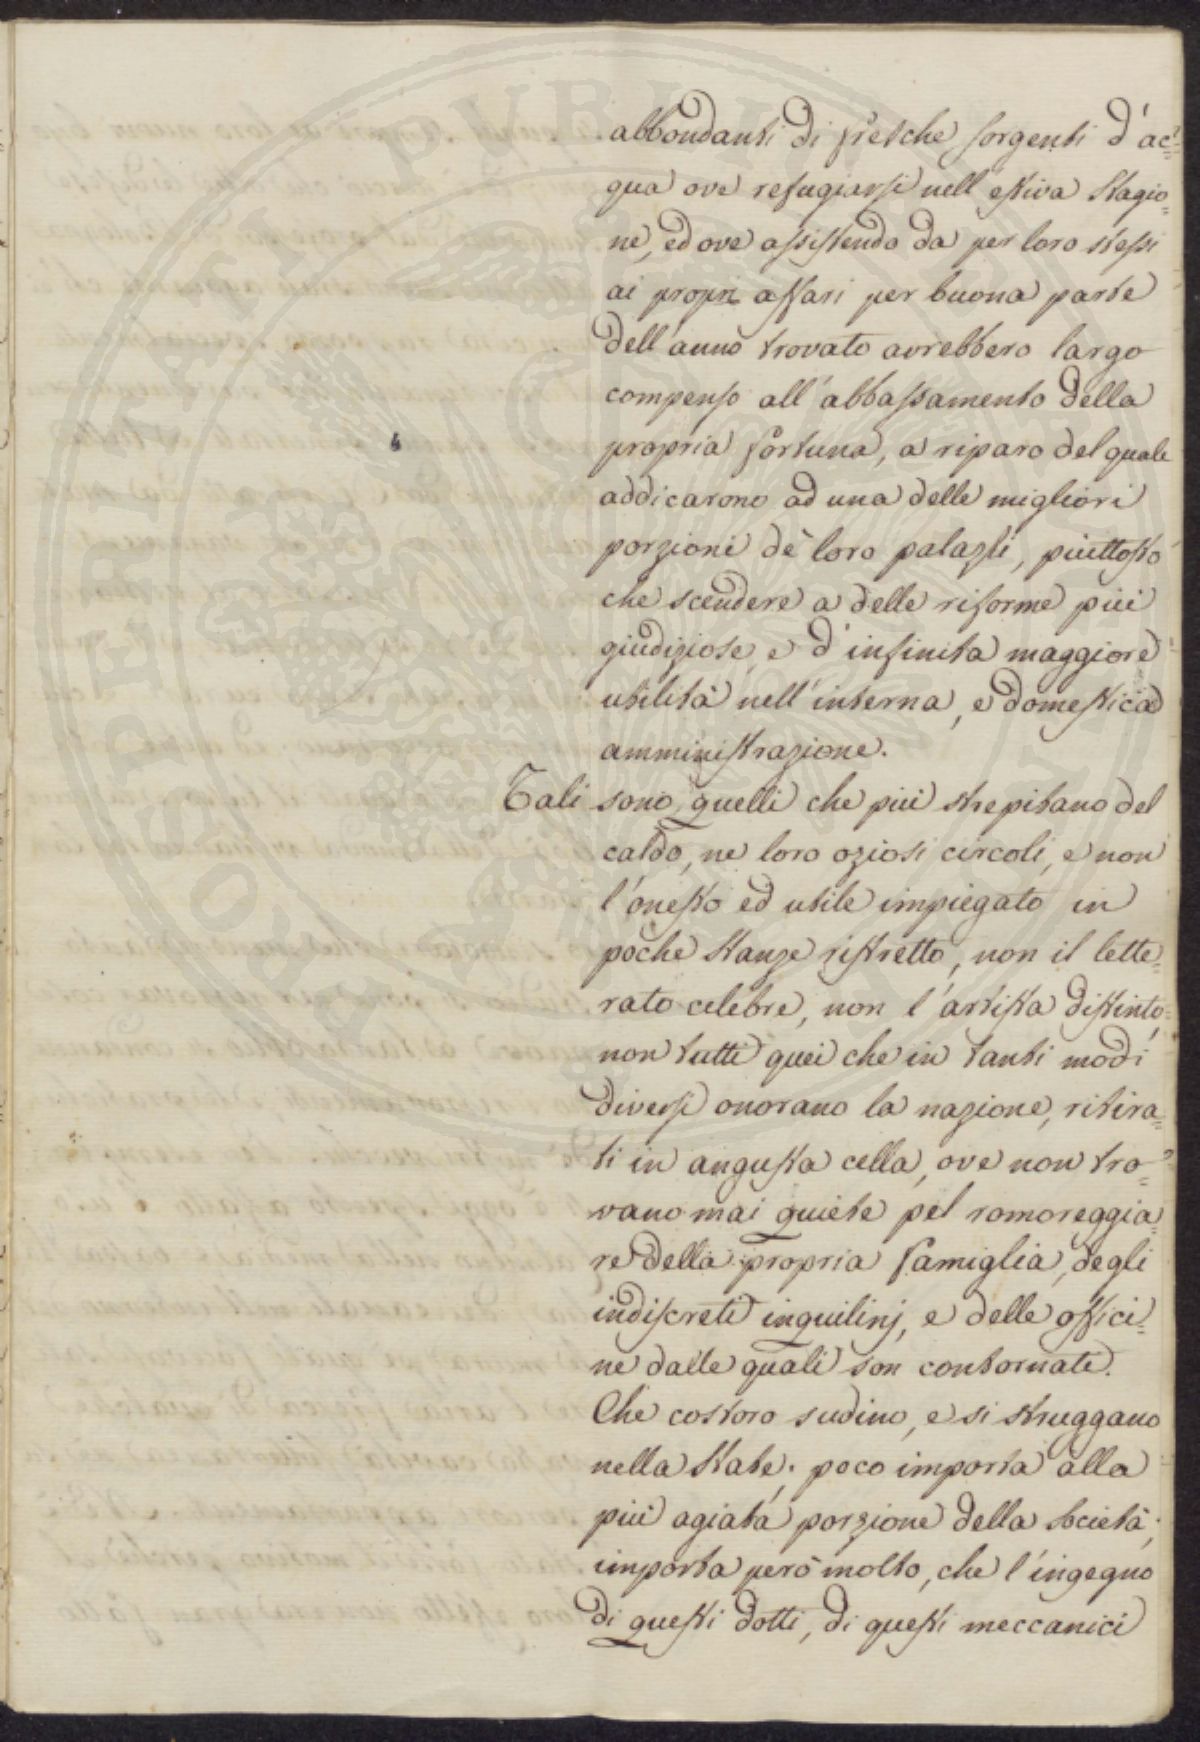 abbondanti di fresche sorgenti d'ac=
qua ove refugiarsi nell'estiva stagio=
ne, ed ove assistendo da per loro stessi
ai propri affari per buona parte
dell'anno trovato avrebbero largo
compenso all'abbassamento della
propria fortuna, a riparo del quale
addicarono ad una delle migliori
porzioni de' loro palazzi, piuttosto
che scendere a delle riforme più
giudiziose, e d'infinita maggiore
utilità nell'interna, e domestica
amministrazione.
Tali sono quelli che più strepitano del
caldo, ne loro oziosi circoli, e non
l'onesto ed utile impiegato in
poche stanze ristretto, non il lette=
rato celebre, non l'artista distinto,
non tutti quei che in tanti modi
diversi onorano la nazione, ritira=
ti in angusta cella, ove non tro=
vano mai quiete pel romoreggia=
re della propria famiglia, degli
indiscreti inquilinj, e delle offici=
ne dalle quali son contornati.
Che costoro sudino, e si struggano
nella state, poco importa alla
più agiata porzione della società;
importa però molto, che l'ingegno
di questi dotti, di questi meccanici